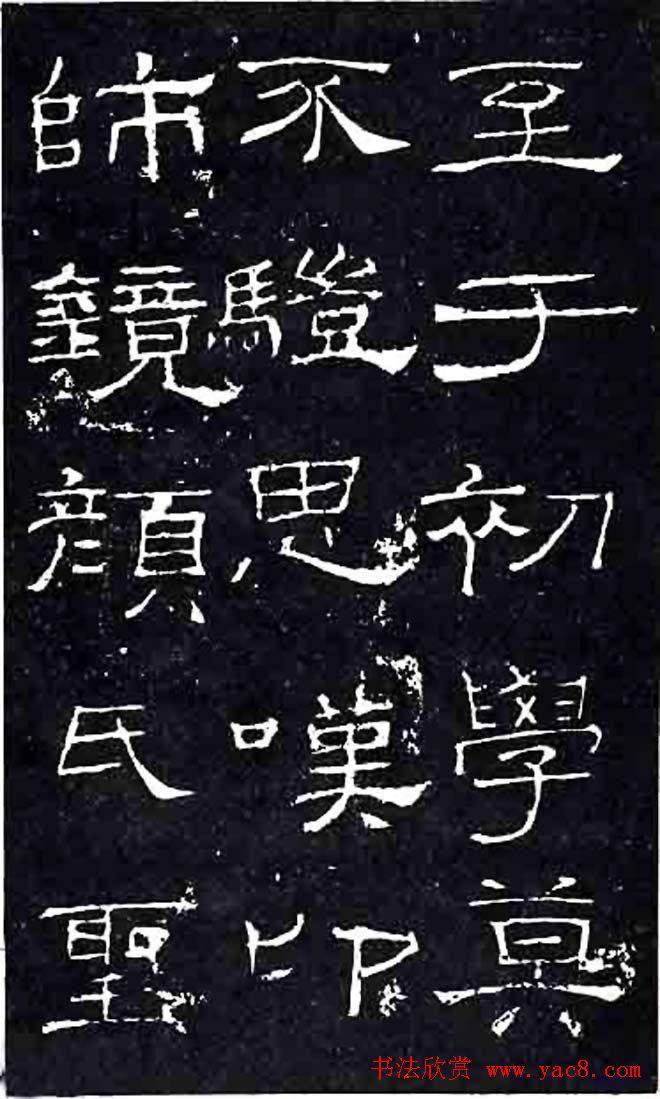 至于初學莫
不思嘆卬
師鏡顏氏聖
书法欣赏 www.yac8.com